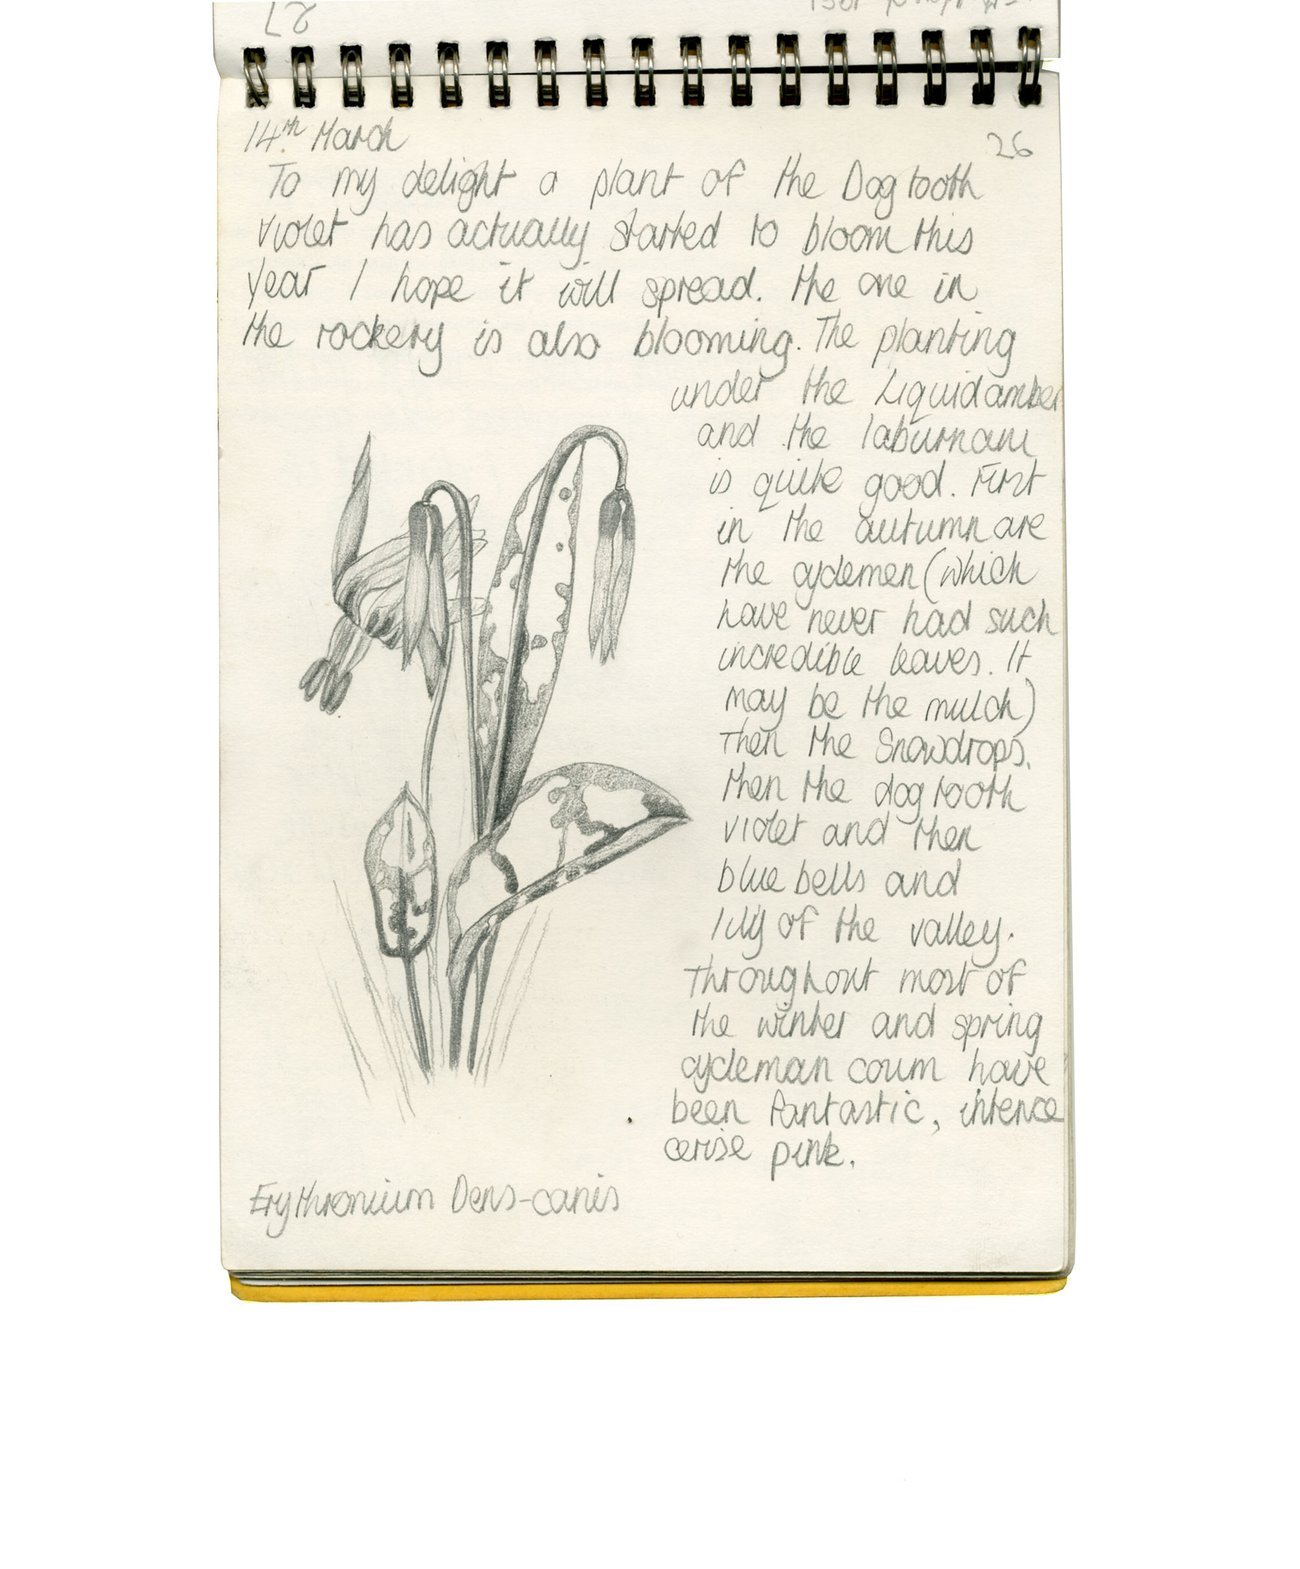 27
14th March
26
To my delight a plant of the Dog tooth
violet has actually started to bloom this
year I hope it will spread. The one in
the rockery is also blooming. The planting
under the Liquidamber
and the laburnam
is quite good. First
in the autumn are
the cyclemen (which
have never had such
incredible leaves. It
may be the mulch)
Then the Snowdrops.
then the dog tooth
violet and then
blue bells and
lily of the valley.
Throughout most of
the winter and spring
cycleman coum have
been fantastic, intence
cerise pink.
Erythronium Dens-canis